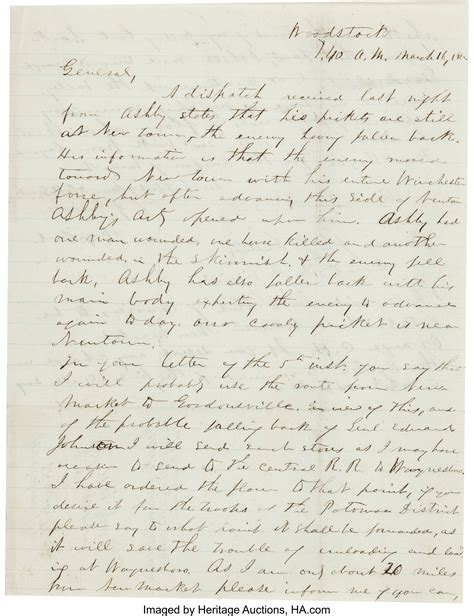 Woodstock
7.40 A.M. March 16, 186
General,
A dispatch received last night
from Ashby states that his pickets are still
at New town, the enemy having fallen back.
His information is that the enemy moved
toward New town with his entire Winchester
force, but after advancing this side of Newton
Ashby's Art opened upon him. Ashby had
one man wounded, one horse killed and another
wounded, in the skirmish & the enemy fell
back, Ashby has also fallen back with his
main body expecting the enemy to advance
again to day. Our cavalry picket is near
Newtown.
In your letter of the 5th inst. you say that
I will probably use the route from New
Market to Gordonsville. In view of this, and
of the probable falling back of Genl Edward
Johnson I will send such stores as I may have
occasion to send to the central R. R. to Waynesboro.
I have ordered the flour to that point, if you
desire it for the troops of the Potomac District
please say to what point it shall be forwarded, as
it will save the trouble of unloading and load
ing at Waynesboro. As I am only about 20 miles
from New Market please inform me if you can,
Imaged by Heritage Auctions, HA.com